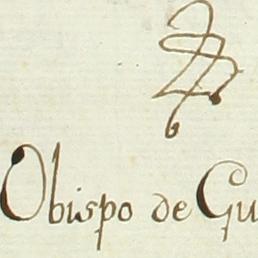 Obispo de Gu